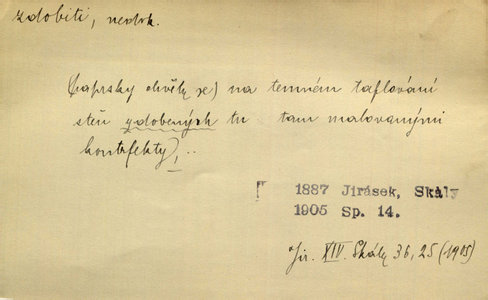 zdobiti, nedok.
(paprsky chvěly se) na temném taflování
stěn zdobených tu tam malovanými
kontrfekty), ..
1887 Jirásek, Skály
1905 Sp. 14.
Jir. XIV. Skály 36, 25 (1905)